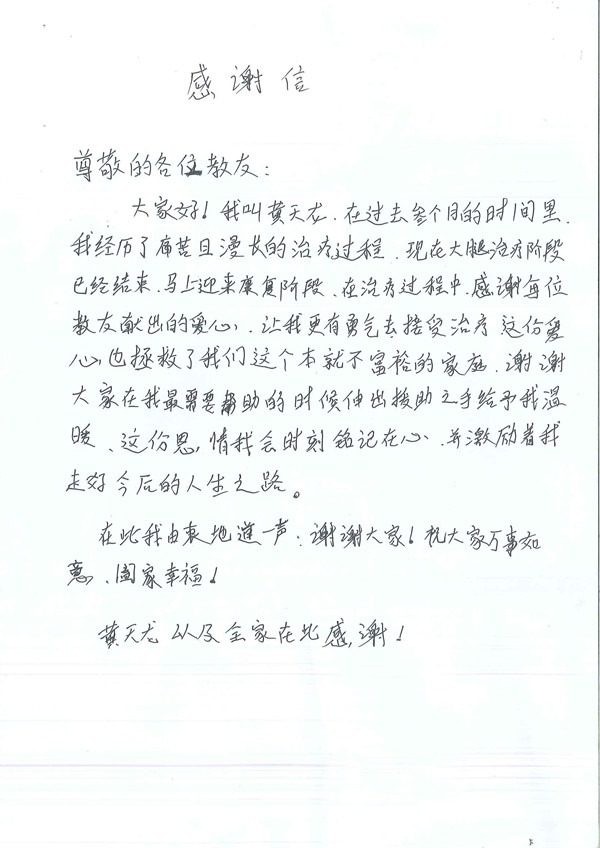 感谢信
尊敬的各位教友:
大家好!我叫黄天龙.在过去叁个月的时间里.
我经历了痛苦且漫长的治疗过程.现在大腿治疗阶段
已经结束.马上迎来康复阶段.在治疗过程中.感谢每位
教友献出的爱心.让我更有勇气去接受治疗 这份爱
心也拯救了我们这个本就不富裕的家庭.谢谢
大家在我最需要帮助的时候伸出援助之手给予我温
暖、这份恩情我会时刻铭记在心.并激励着我
走好今后的人生之路。
在此我由衷地道一声:谢谢大家!祝大家万事如
意、阖家幸福!
黄天龙以及全家在此感谢!